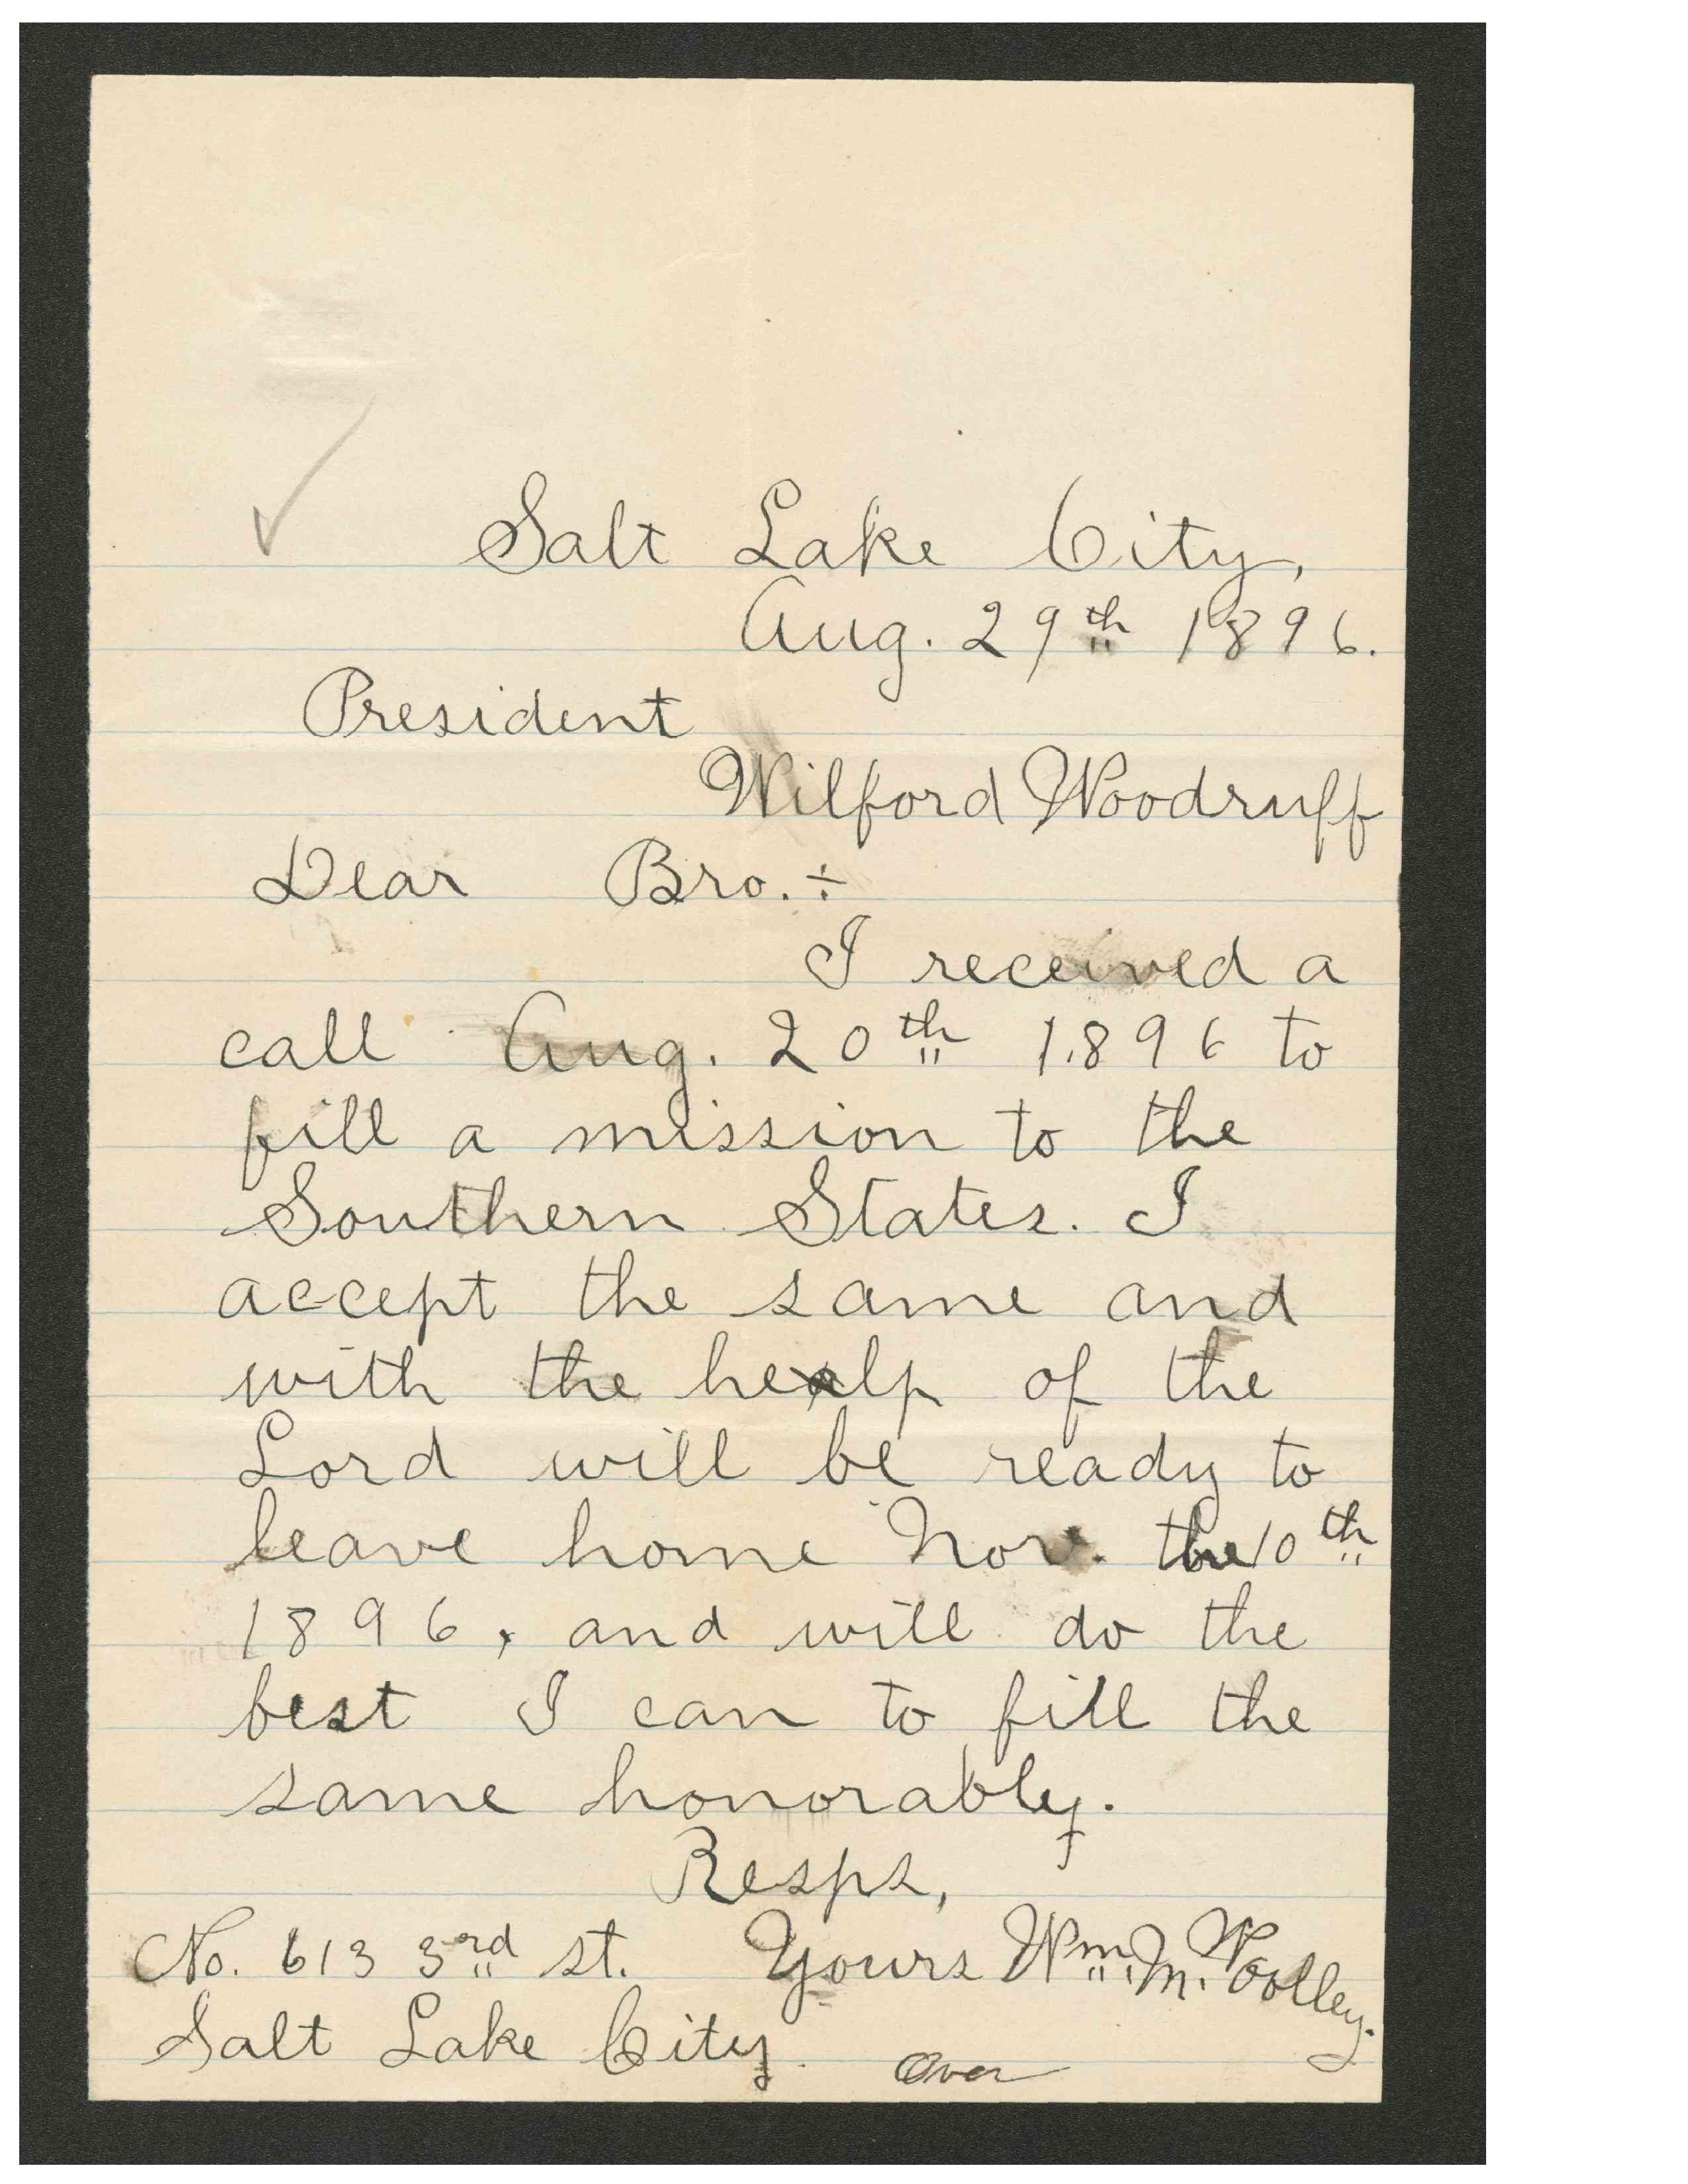 Salt Lake City,
Aug. 29th 1896.
President
Wilford Woodruff
Dear Bro. ÷
I received a
call Aug. 20th 1896 to
fill a mission to the
Southern States. I
accept the same and
with the help of the
Lord will be ready to
leave home Nov. the 10th
1896, and will do the
best I can to fill the
same honorably.
Resps,
No. 613 3rd st. Yours Wm. M. Woolley.
Salt Lake City
Over